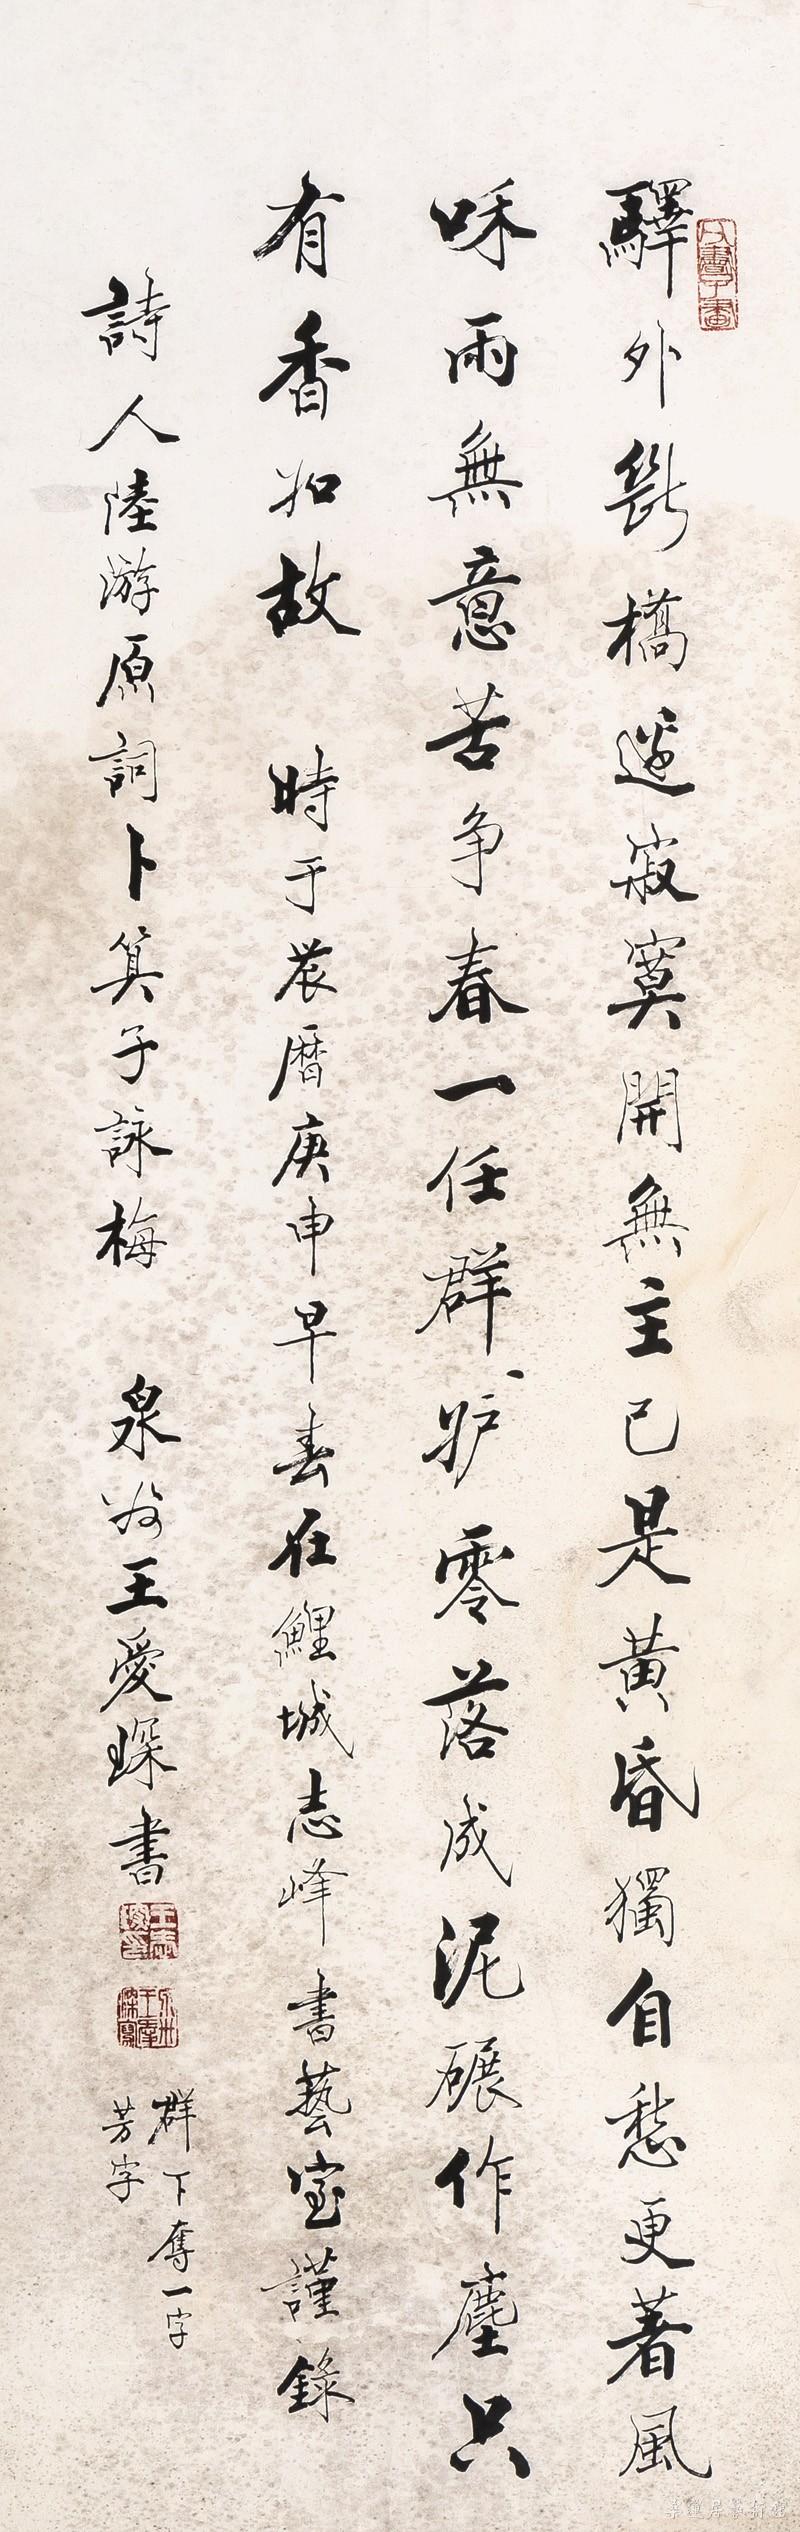 驛外斷橋邊寂寞開無主已是黃昏獨自愁更著風
咊雨無意苦争春一任群妒零落成泥碾作塵只
有香如故 時于农暦庚申早春在鯉城志峰書藝室謹錄
詩人陸游原詞卜算子詠梅 泉州王愛琛書
群下奪一字
芳字